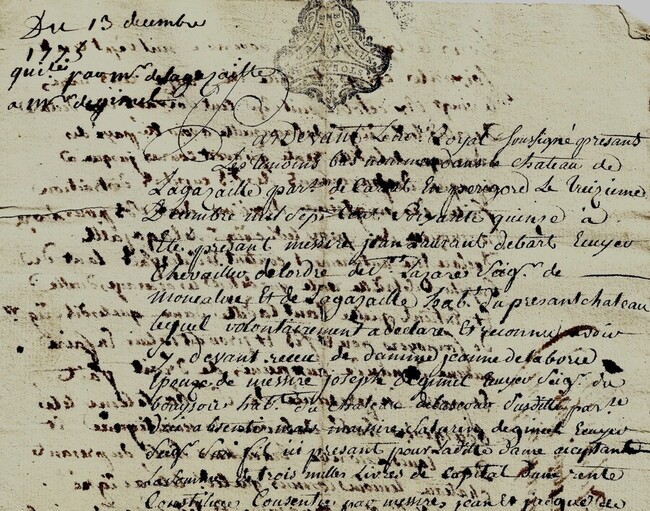 Du 13 decembre
1775
par mr. de lagazaille
a mr. degimel
BORDEAUX
Pardevant Le nore. Royal soussigné presant
Les temoins bas nommes dans le chateau de
Lagazaille parsse. de En perigord Le treizieme
Decembre mil sept Cent soixante quinse a
Ete presant messire jean debart Ecuyer
Chevailler de lordre de st. Lazare seigr. de
et de Lagazaille hab. du presant chateau
lequel volontairement a declare et reconnu avoir
cy devant receu de damme jeanne de laborie
Epouze de messire joseph degimel Ecuyer seigr. du
hab. du chateau susditte parse.
absente mais messire degimel Ecuyer
seigr. son fils ici presant pour laditte dame acceptant
la somme de trois milles Livres de capital dune rente
Constituee Consentie par messires jean et jacques de